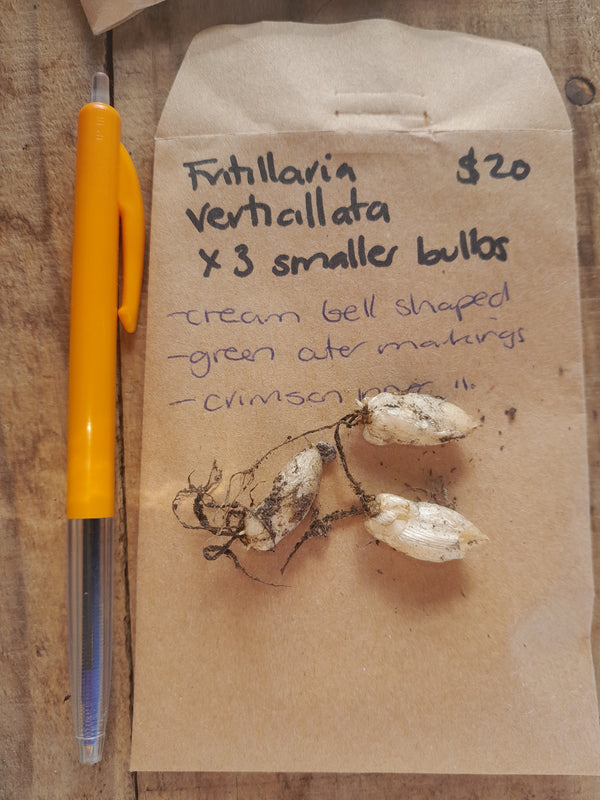 Fritillaria $20
vertiallata
x 3 smaller bulbs
-cream bell shaped
-green outer markings
- crimson inner "